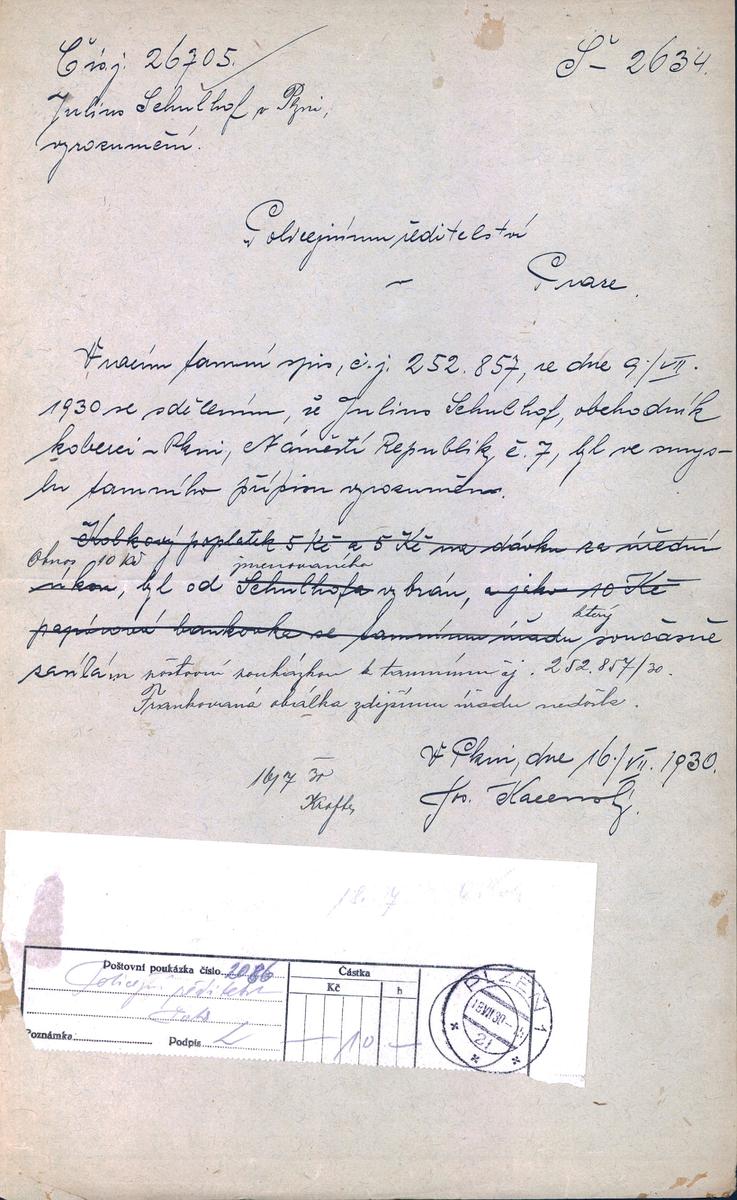 Čís.j. 26705.
Š- 2634.
Julius Schulhof v Plzni,
vyrozumění.
Policejnímu ředitelství
v Praze.
Vracím tamní spis, č.j. 252.857, ze dne 9./VII.
1930 se sdělením, že Julius Schulhof, obchodník
koberci v Plzni, Náměstí Republiky č. 7, byl ve smys-
lu tamního přípisu vyrozuměn.
Kolkový poplatek 5 Kč a 5 Kč na dávku za úřední
Obnos 10 Kč jmenovaného
úkon, byl od Schulhofa vybrán, a jako 10 Kč
který
papírová bankovka se tamnímu úřadu současně
zasílám poštovní poukázkou k tamnímu čj. 252.857/30.
Frankovaná obálka zdejšímu úřadu nedošla.
V Plzni, dne 16./VII. 1930.
16/7 30
Jos.
Poštovní poukázka číslo 2086
Částka
Kč h
Policejní ředitelství
Poznámka: Podpis
— 10 —
PLZEŇ 1
18.VII.30
2f